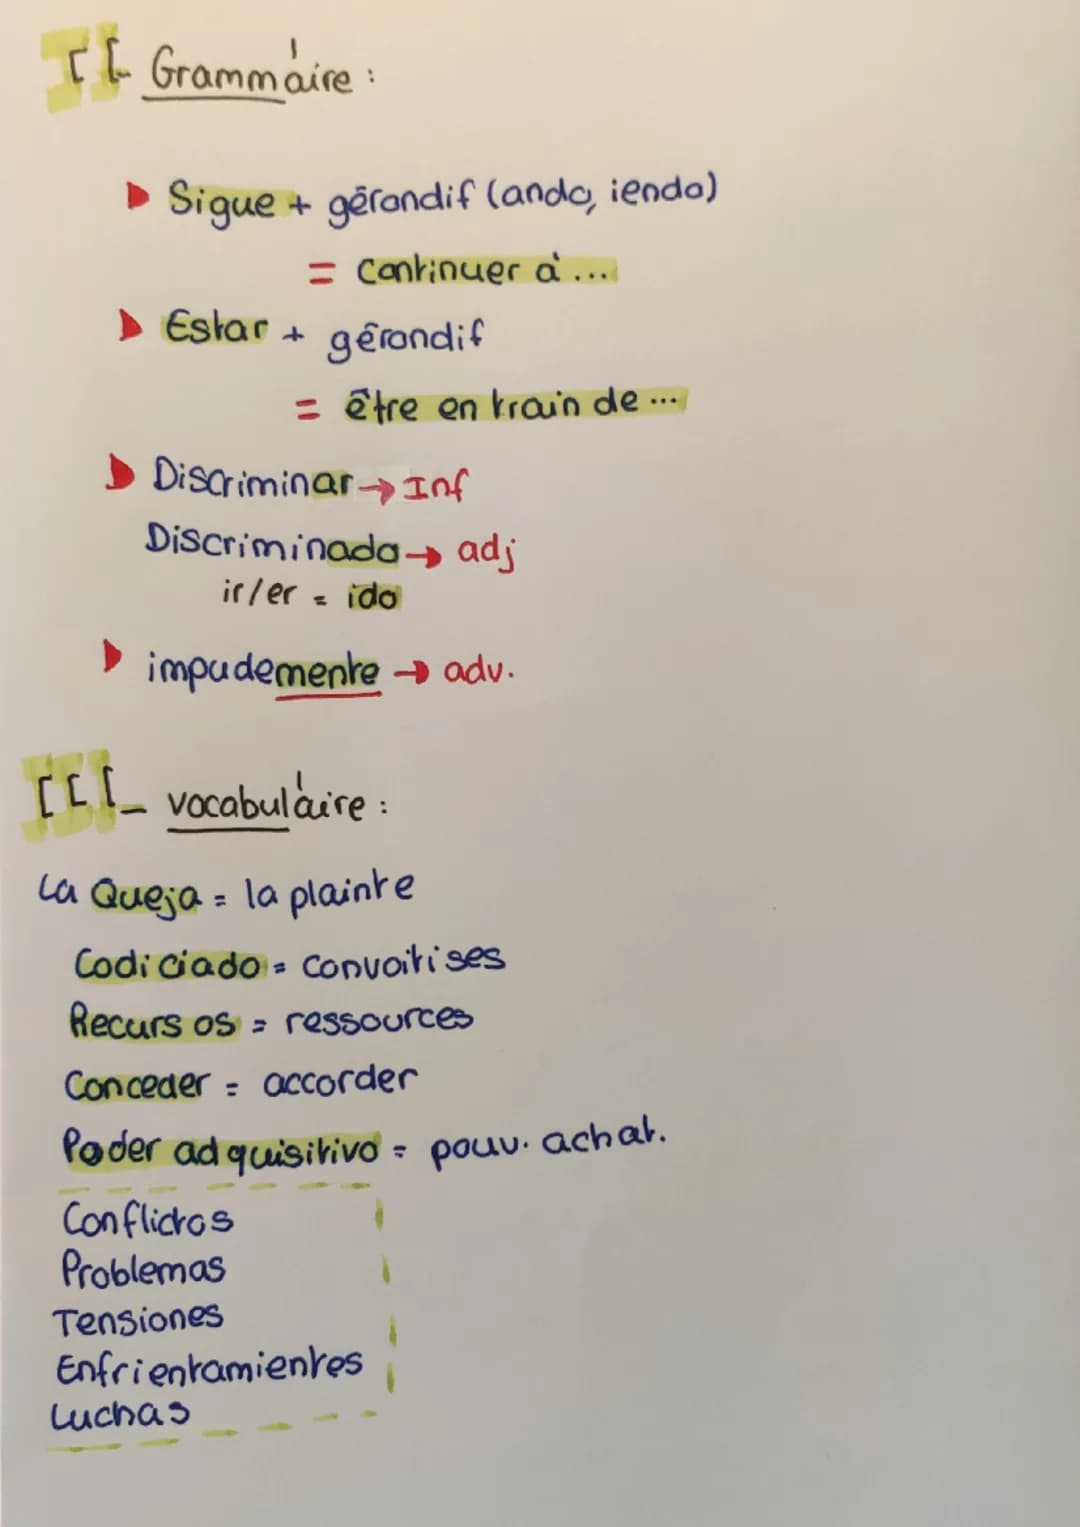 II- Grammaire :
Sigue + gérondif (ando, iendo)
= Continuer à ...
Estar + gérondif
= être en train de ...
Discriminar → Inf
Discriminado → adj
ir/er = ido
impudemente → adv.
III_ vocabulaire :
La Queja = la plainte
Codiciado = convoitises
Recursos = ressources
Conceder = accorder
Poder adquisitivo = pouv. achat.
Conflictos
Problemas
Tensiones
Enfrientamientes
Luchas